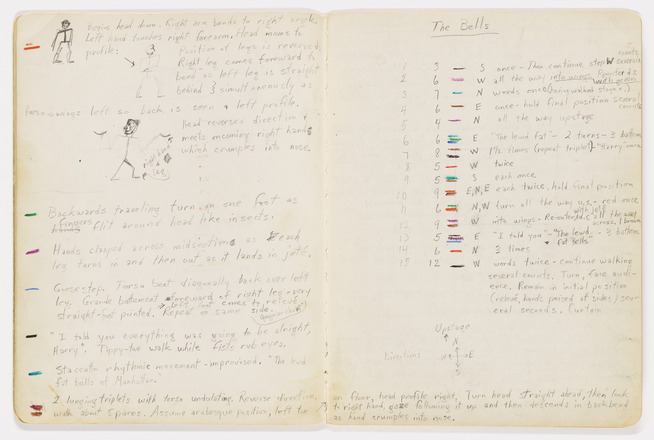 Begins head down. Right arm bends to right angle.
Left hand touches right forearm. Head moves to
profile:
Position of legs is reversed.
Right leg comes foreward to
bend as left leg is straight
behind & simultaneously as
torso swings left so back is seen & left profile.
Head reverses direction &
meets incoming right hand
which crumples into nose.
Backwards traveling turn on one foot as
fingers flit around head like insects.
Hands clasped across midsection as each
leg turns in and then out as it lands in
Goosestep. Torso bent diagonally back over left
leg. Grande battement foreward of right leg - very
straight - foot pointed. Repeat on same side.
"I told you everything was going to be alright,
Harry". Tippy-toe walk while fists rub eyes.
Staccato rhythmic movement - improvised. "The lewd
fat bells of Manhattan."
2 lunging triplets with torso undulating. Reverse direction,
walk about 5 paces. Assume arabesque position, left toe
The Bells
1 3 S once - Then continue step several counts
2 6 W all the way into wings. Reenter d.s.
3 7 N words once
4 6 E once - hold final position several counts
5 4 N all the way upstage
6 6 E "The lewd fat" - 2 turns - bottom
7 8 W 1½ times (repeat triplet) - "Harry"
8 5 W twice
9 5 S each once
10 9 E, N, E each twice. hold final position
11 6 N, W turn all the way u.s. - red once
12 9 W into wings - Re-enter d.s. all the way across
13 5 E "I told you" - "The lewd fat Bells"
14 6 N times
15 12 W words twice - continue walking
several counts. Turn, face audi-
ence. Remain in initial position
(relevé, hands poised at sides) sev-
eral seconds. Curtain
Upstage
N
Directions W E
S
on floor, head profile right. Turn head straight ahead, then look
to right hand, gaze following it up and then descends in backbend
as hand crumples into nose.